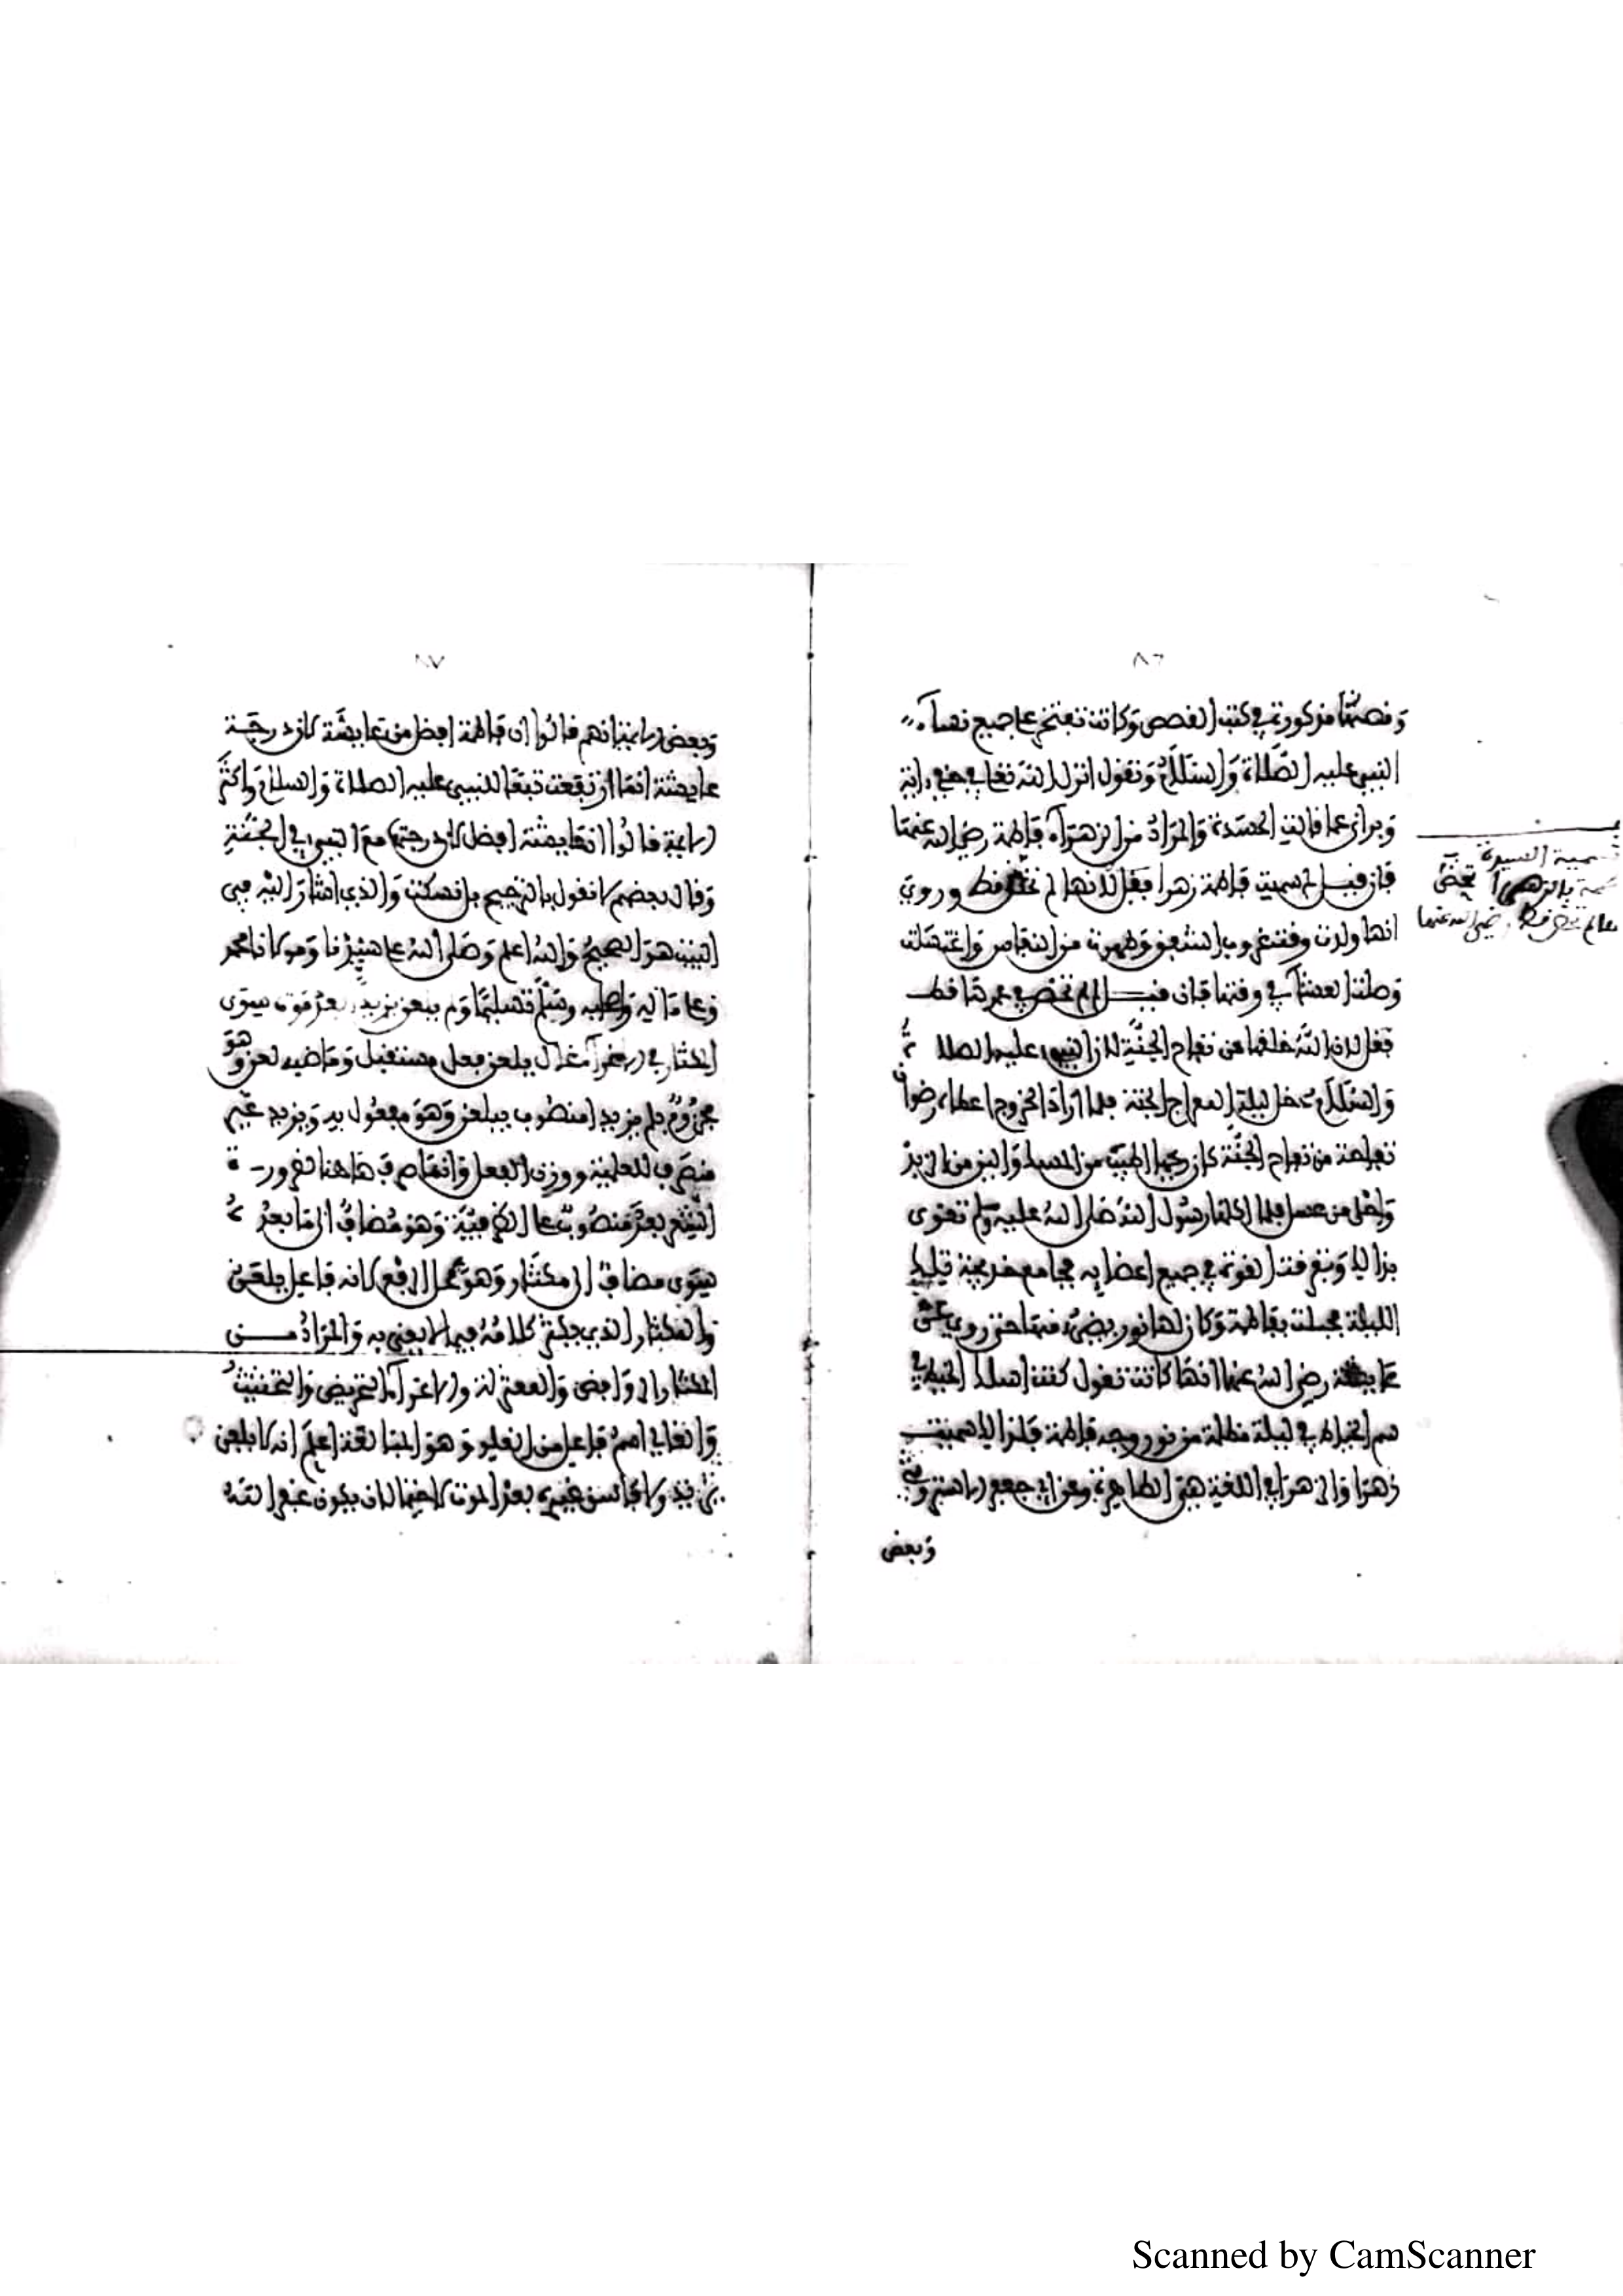 ٨٦
وقصتها مذكورة في كتب القصص وكانت تفتخر على جميع نساء
النبي عليه الصلاة والسلام وتقول انزل الله تعالى في حقي ءاية
وبراني عما قالت الحسدة والمراد من الزهراء فاطمة رضي الله عنها
فان قيل لم سميت فاطمة زهرا فقل لانها لم تحض قط وروي
انها ولدت وقت غروب الشفق وطهرت من النفاس واغتسلت
وصلت العشاء في وقتها فان قيل لم لم تحض في عمرها قط
فقل لان الله خلقها من تفاح الجنة لان النبي عليه الصلاة
والسلام دخل ليلة المعراج الجنة فلما اراد الخروج اعطاه رضوان
تفاحة من تفاح الجنة كان ريحها اطيب من المسك والين من الزبد
واحلى من عسل فلما اكلها رسول الله صلى الله عليه وسلم تقوى
بذالك وتفرقت القوة في جميع اعضايه فجامع خديجة تلك
الليلة فحبلت بفاطمة وكان لها نور يضيء منها حتى روي عن
عايشة رضي الله عنها انها كانت تقول كنت اسلك الخيط في
سم الخياط في ليلة مظلمة من نور وجه فاطمة فلذالك سميت
زهرا والزهرا في اللغة هو الطاهرة وعن ابي جعفر
وبعض
تسمية السيدة
فاطمة بالزهرا
لم تحض قط رضي الله عنها
٨٧
وبعض الايمة انهم قالوا ان فاطمة افضل من عايشة لان درجة
عايشة انما ارتفعت تبعا للنبي عليه الصلاة والسلام واكثر
الايمة قالوا ان عايشة افضل لان درجتها مع النبي في الجنة
وقال بعضهم لا نقول بالترجيح بل نسكت والذي اشار اليه في
البيت هو الصحيح والله اعلم وصلى الله على سيدنا ومولانا محمد
وعلى ءاله واصحابه وسلم تسليما ولم يلعن يزيدا بعد موت سوى
المكثار في الاغرا غال يلعن فعل مستقبل وماضيه لعن وهو
مجزوم بلم يزيدا منصوب بيلعن وهو مفعول به ويزيد غير
منصرف للعلمية ووزن الفعل وانصرف هاهنا لضرورة
الشعر بعد منصوب على الظرفية وهو مضاف الى ما بعده
سوى مضاف الى مكثار وهو في محل الرفع لانه فاعل يلعن
والمكثار الذي يكثر كلامه فيما لا يعني به والمراد من
المكثار الروافض والمعتزلة والاغراء التحريض والتحثيث
والغالي اسم فاعل من الغلو وهو المبالغة اعلم انه لا يلعن
يزيد ولا لمجانسن غيره بعد الموت لاحتمال ان يكون عند الله